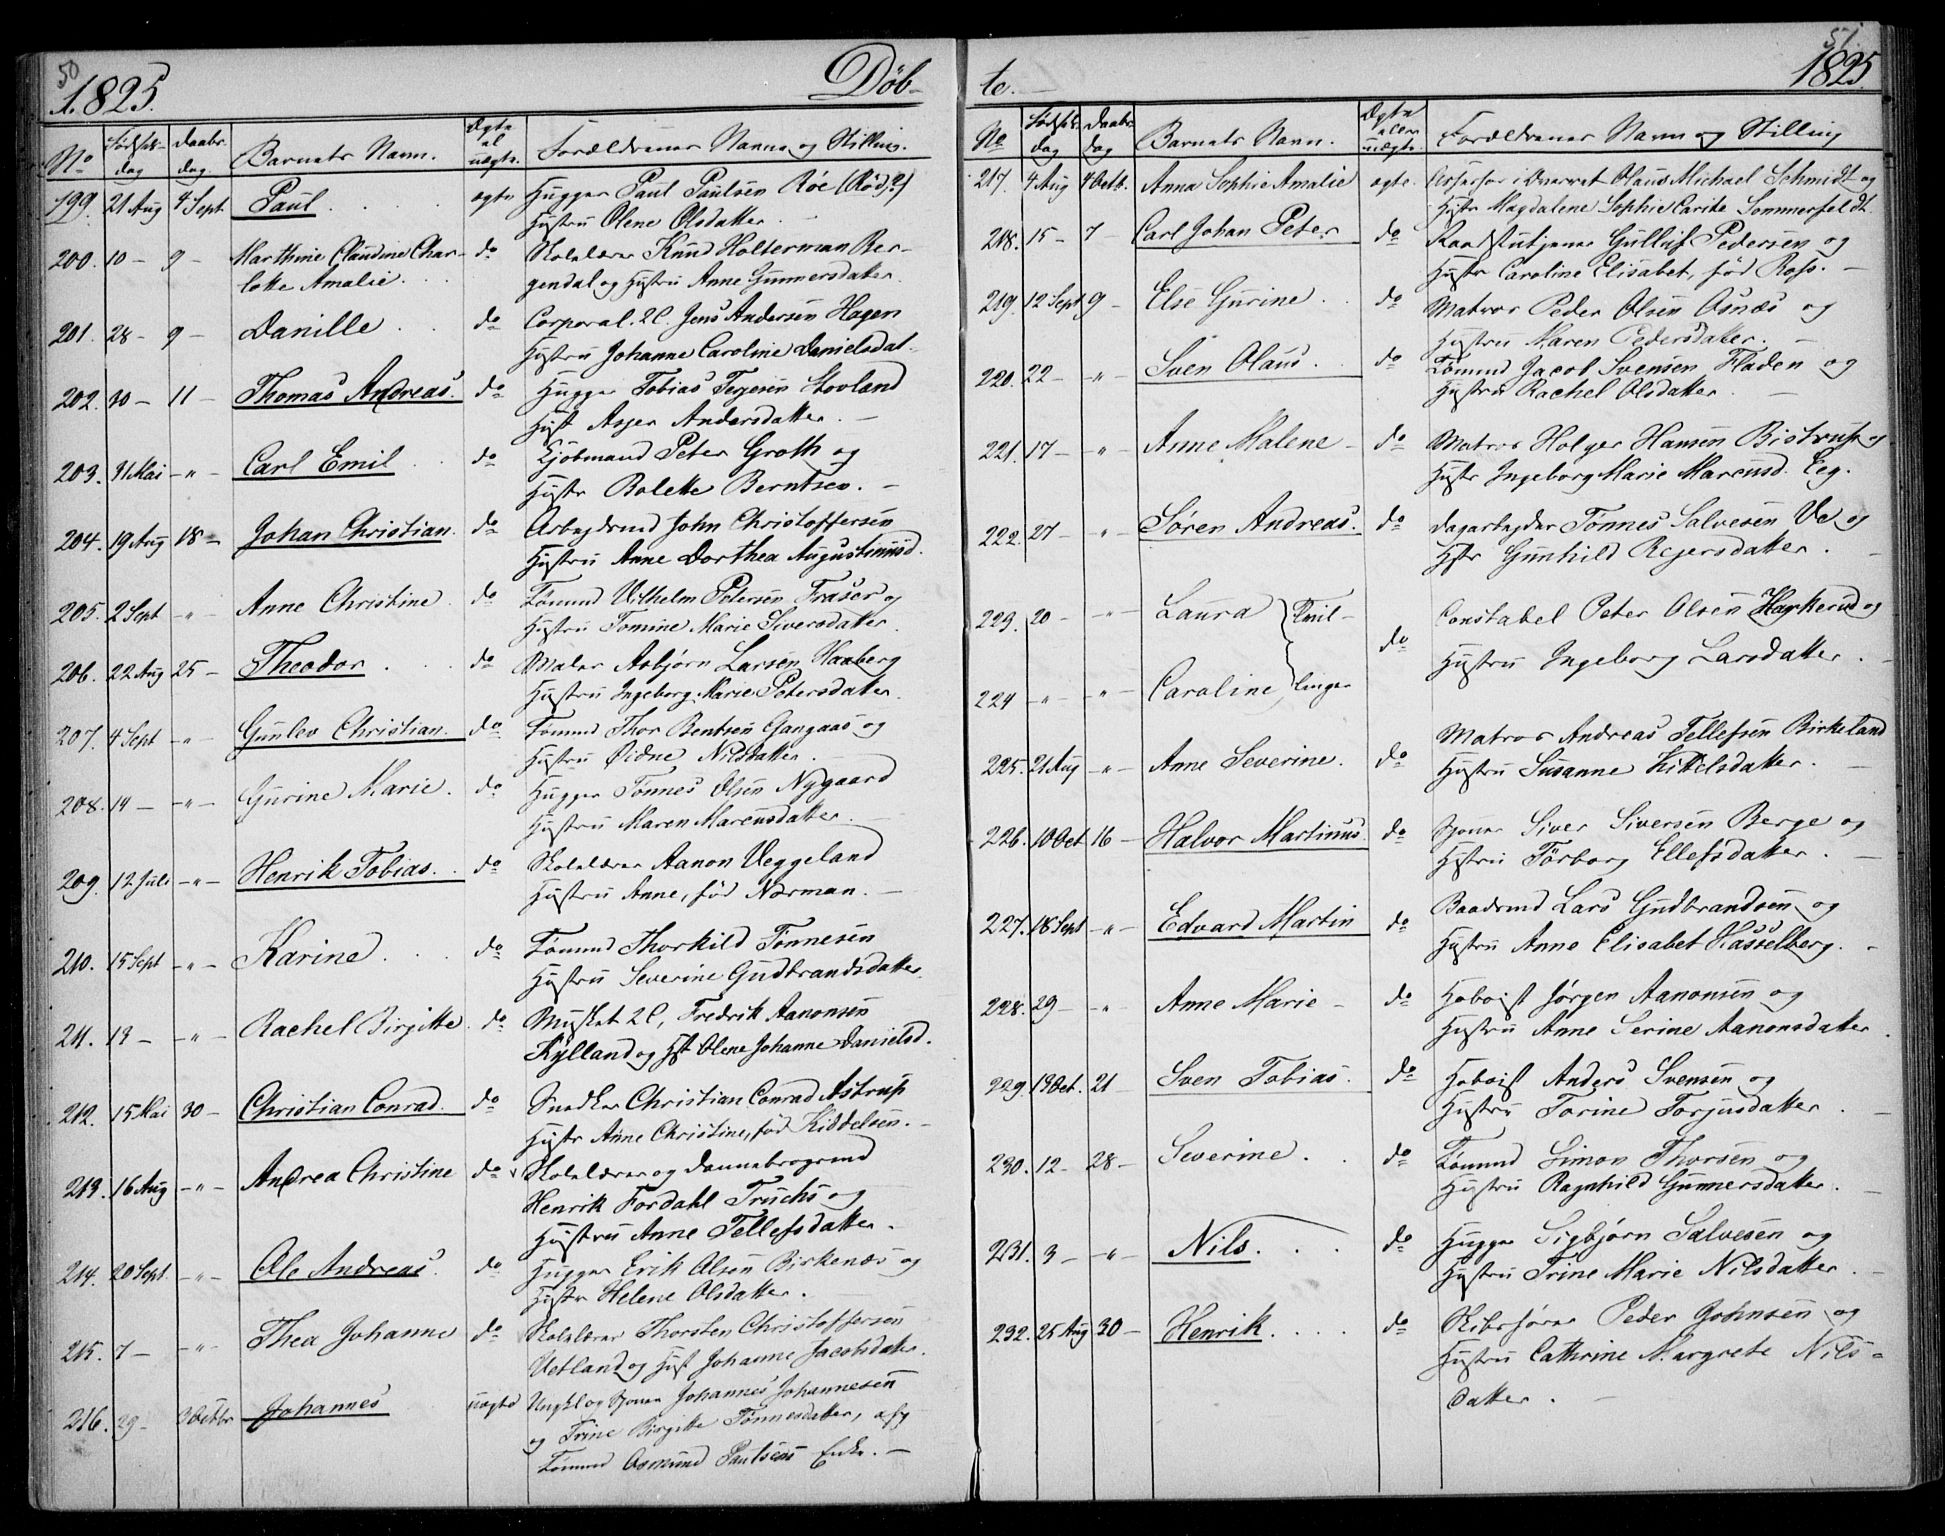 50
1825. Döb-
No Födsels- dag Daabs- dag. Barnets Navn. Ægte el uægte. Forældrenes Navne og Stilling.
199. 21 Aug 4 Sept Paul . . . . ægte Hugger Paul Paulsen Röe (Rød?)
Hustru Olene Olsdatter.
200. 10 – 9 – Marthine Claudine Char- do Skolelærer Knud Holterman Ber-
lotte Amalie . . gendal og Hustru Anne Gunnersdatter
201. 28 – 9 – Danille . . do Corporal. 2C. Jens Andersen Hagen
Hustru Johanne Caroline Danielsdat.
202. 30 – 11 – Thomas Andreas. do Hugger Tobias Terjesen Stovland
Hust Asjer Andersdatter. –
203. 31 Mai – " – Carl Emil . . do Kjöbmand Peter Groth og
Hustr Bolette Berntsen. –
204. 19 Aug 18 – Johan Christian. do Arbejdsmd John Christoffersen
Hustru Anne Dorthea Augustinusd.
205. 2 Sept – " – Anne Christine . do Tömmd Vilhelm Petersen Fraser og
Hustru Tomine Marie Siversdatter.
206. 22 Aug 25 – Theodor . . . do Maler Asbjörn Larsen Haaberg
Hustru Ingeborg Marie Petersdatter.
207. 4 Sept – " – Gunlev Christian. do Tömmd Thor Bentsen Gangaas og
Hustru Öidne Nilsdatter.
208. 14 – – " – Gurine Marie . do Hugger Tönnes Olsen Nygaard
Hustru Maren Marcusdatter. –
209. 12 Juli – " – Henrik Tobias. . do Skolelærer Aanon Veggeland
Hustru Anne, född Norman. –
210. 15 Sept – " – Karine . . . do Tömmd Thorkild Tönnesen
Hustru Severine Gudbrandsdatter.
211. 19 – – " – Rachel Birgitte . do Musket 2C, Fredrik Aanonsen
Kylland og Hst Olene Johanne Danielsd.
212. 15 Mai 30 – Christian Conrad. do Snedker Christian Conrad Astrup
Hustr Anne Christine, född Kiddelsen. –
213. 16 Aug – " – Andrea Christine do Skolelærer og Dannebrogsmd
Henrik Fordahl Truchs og
Hustru Anne Tellefsdatter.
214. 20 Sept. – " – Ole Andreas. do Hugger Erik Olsen Birkenæs og
Hustr Helene Olsdatter.
215. 7 – – " – Thea Johanne do Skolelærer Thorsten Christoffersen
Vetland og Hust Johanne Jacobsdatter.
216. 29 – 3 Octbr Johannes uægte Ungkl og Spener Johannes Johannesen
og Trine Birgitte Tönnesdatter, afg
Tömmd Osmund Paulsens Enke. –
51.
te. 1825.
No Födsels dag Daabs dag Barnets Navn. Ægte eller uægte. Forældrenes Navn og Stilling
217. 4 Aug 4 Octb. Anna Sophie Amalie ægte. Olaus Michael Schmidt og
Hustr Magdalene Sophie Carite Sommerfeldt
218. 15 – 7 – Carl Johan Peter do Raadstutjener Gulluf Pedersen og
Hustr Caroline Elisabet, född Ross. –
219. 12 Sept 9 – Else Gurine . . do Matros Peder Olsen Osnæs og
Hustru Maren Pedersdatter. –
220. 22 – – " – Sven Olaus . . do Tömmd Jacob Svensen Fladen og
Hustru Rachel Olsdatter . –
221. 17 – – " – Anne Malene – do Matros Holger Hansen Bistrup og
Hustr Ingeborg Marie Marcusd. Eeg.
222. 27 – – " – Sören Andreas. do Dagarbejder Tönnes Salvesen Ve og
Hstr Gunhild Rejersdatter. –
223. 20 – " – Laura } Tvil- do Constabel Peter Olsen Harkerud og
Hustru Ingeborg Larsdatter. –
224 – " – – " – Caroline } linger
225. 21 Aug – " – Anne Severine. do Matros Andreas Tellefsen Birkeland
Hustru Susanne Kittilsdatter. –
226. 10 Oct 16 – Halvor Martinus. do Spener Siver Siversen Berge og
Hustru Törborg Ellefsdatter. –
227. 18 Sept – " – Edvard Martin do Baadsmd Lars Gudbrandsen og
Hustru Anne Elisabet Hasselberg. –
228. 29 – – " – Anne Marie – do Hoboist Jörgen Aanonsen og
Hustru Anne Serine Aanonsdatter.
229. 19 Oct. 21 – Sven Tobias . do Hoboist Anders Svensen og
Hustru Torine Torjusdatter. –
230. 12 – 28 – Severine . . . do Tömmd Simon Thorsen og
Hustru Ragnhild Gunnersdatter. –
231. 3 – – " – Nils. . . . do Hugger Sigbjørn Salvesen og
Hustru Trine Marie Nilsdatter. –
232. 25 Aug 30 – Henrik. . . . do Skibsförer Peder Johnsen og
Hustru Cathrine Margrete Nils-
datter. –